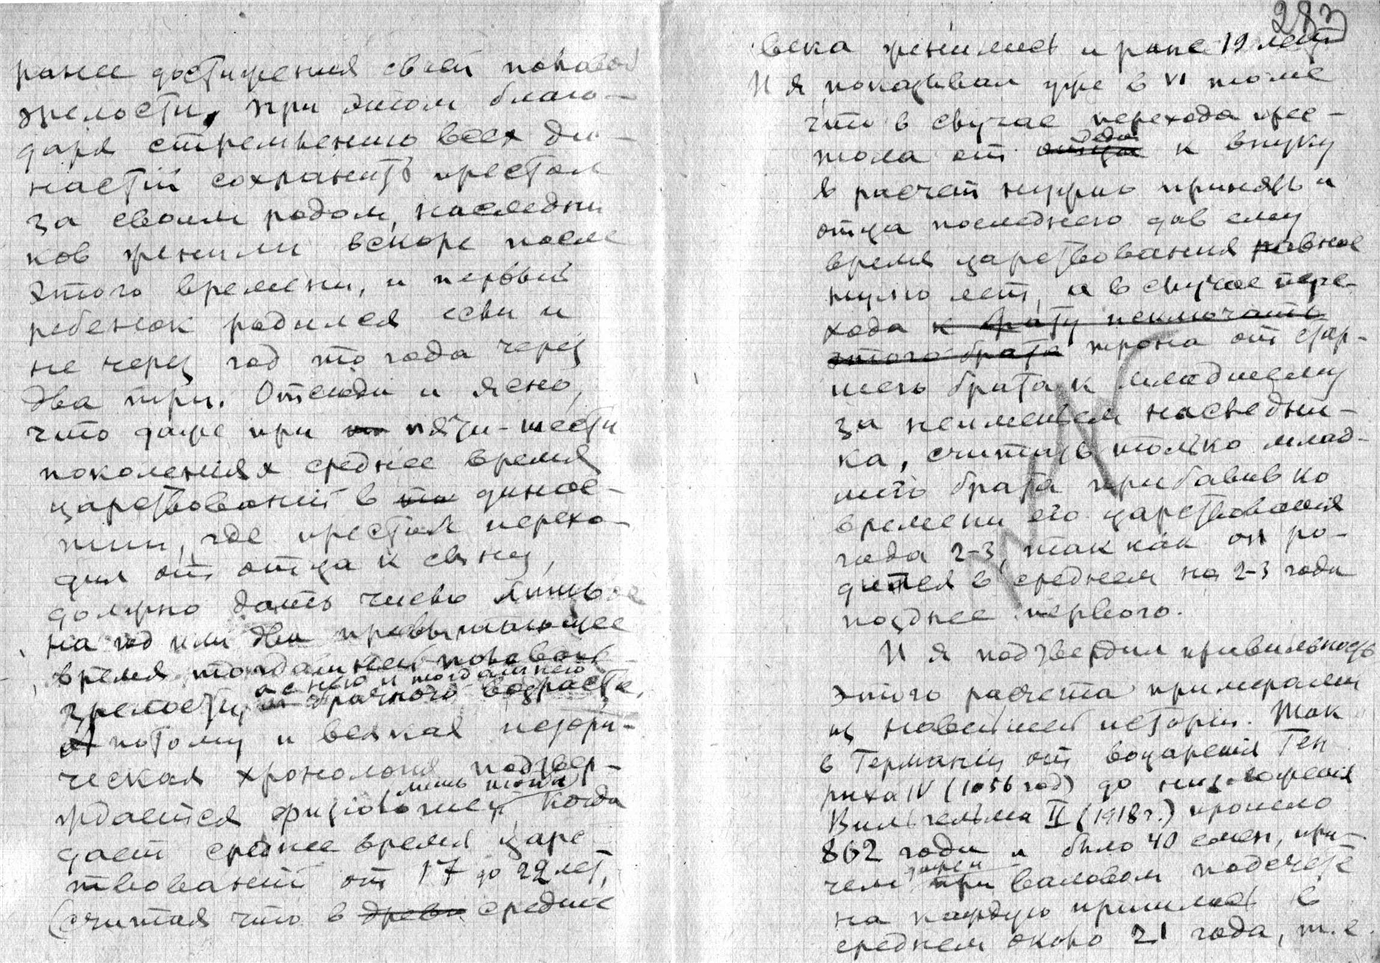 ранее достижения своей половой
зрелости, при этом благо-
даря стремлению всех ди-
настий сохранить престол
за своим родом, наследни
ков женили вскоре после
этого времени, и первый
ребенок родился если и
не через год то года через
два три. Отсюда и ясно,
что даже при пяти-шести
поколениях среднее время
царствований в династ-
тии, где престол перехо-
дил от отца к сыну,
должно дать число лишь
на год или два превышающее
время тогдашней половой
зрелости, а с нею и тогдашнего
брачного возраста,
потому и всякая истори-
ческая хронология подтвер-
лишь тогда
ждается физиологией, когда
дает среднее время царс
твований от 17 до 22 лет,
(считая что в древн средние
283
века женились и ране 19 лет)
И я показывал уже в VI томе
что в случае перехода прес-
деда
тола от отца к внуку
в расчет нужно принять и
отца последнего дав ему
время царствования равное
нулю лет, а в случае пере-
хода к брату исключать
этого брата трона от стар-
шего брата к младшему
за неимением наследни-
ка, считать только млад-
шего брата прибавив ко
времени его царствования
года 2-3, так как он ро-
дился в среднем на 2-3 года
позднее первого.
И я подтвердил правильность
этого расчета примерами
из новейшей истории. Так
в Германии от воцарения Ген
риха IV (1056 год) до низложения
Вильгельма II (1918 г.) прошло
862 года и было 40 смен, при-
чем при валовом подсчете
на каждую пришлось в
среднем около 21 года, т.е.